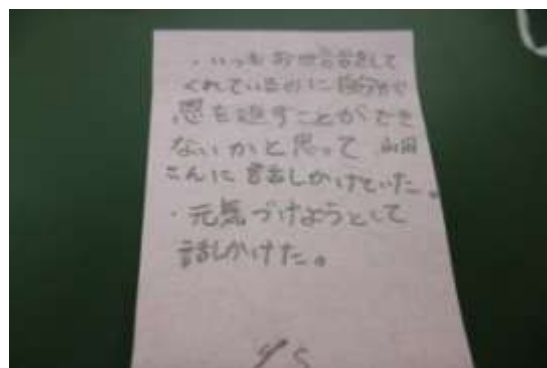 ・いつもお世話をして
くれているのに自分が
恩を返すことができ
ないかと思って 山田
さんに話しかけていた。
・元気づけようとして
話しかけた。